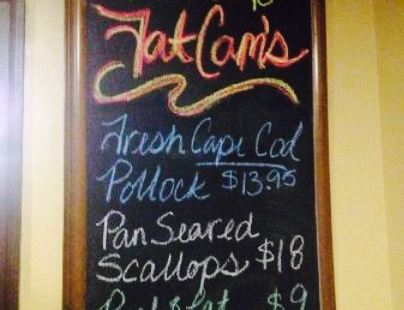 Fat Cam's
Fresh Cape Cod
Pollock $13.95
Pan Seared
Scallops $18
$9